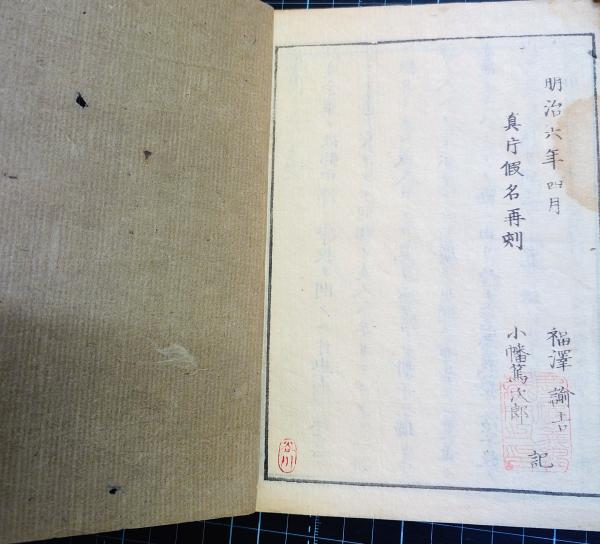 明治六年四月
真片假名再刻
福澤諭吉
小幡篤次郎
記